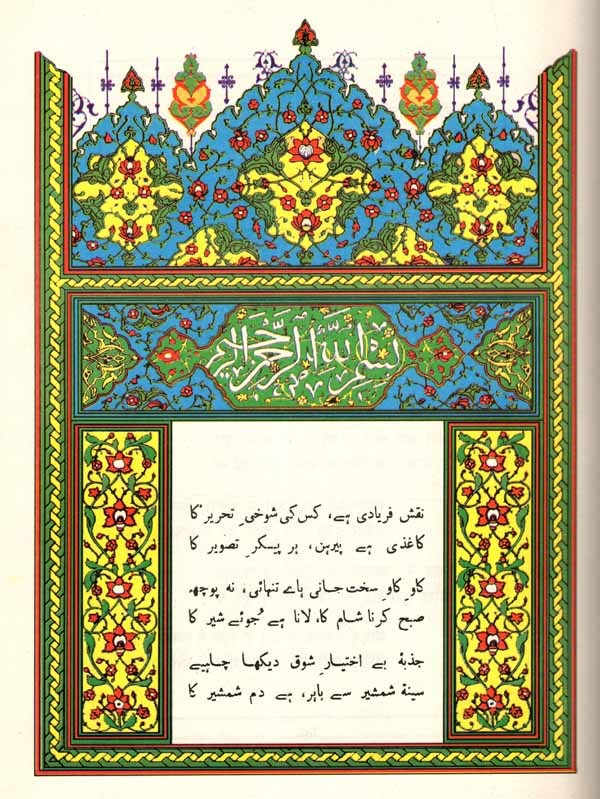 بسم اللہ الرحمن الرحیم
نقش فریادی ہے، کس کی شوخیِ تحریر کا
کاغذی ہے پیرہن، ہر پیکرِ تصویر کا
کاوِ کاوِ سخت جانی ہاے تنہائی، نہ پوچھ
صبح کرنا شام کا، لانا ہے جُوئے شیر کا
جذبۂ بے اختیارِ شوق دیکھا چاہیے
سینۂ شمشیر سے باہر، ہے دم شمشیر کا